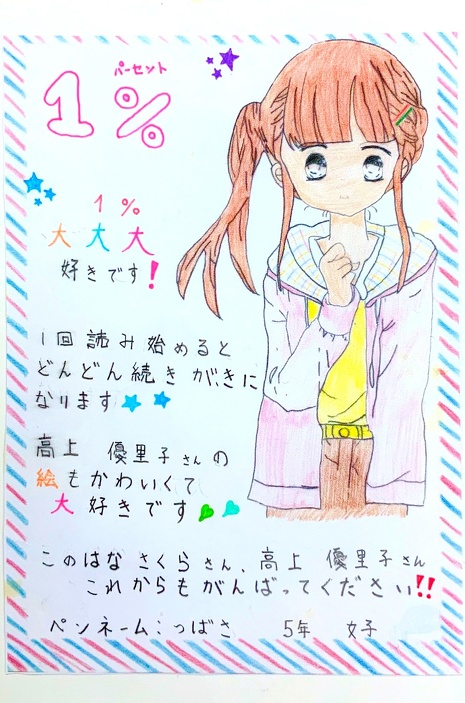 パーセント
1%
1%
大大大
好きです!
1回読み始めると
どんどん続きが、きに
なります
高上 優里子さんの
絵もかわいくて
大好きです
このはな さくらさん、高上 優里子さん
これからもがんばってください!!
ペンネーム:つばさ 5年 女子